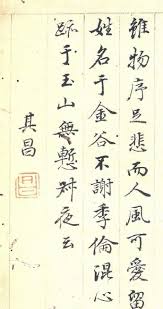 雖物序足悲而人風可愛留
姓名于金谷不謝季倫混心
跡于玉山無慙叔夜云
其昌